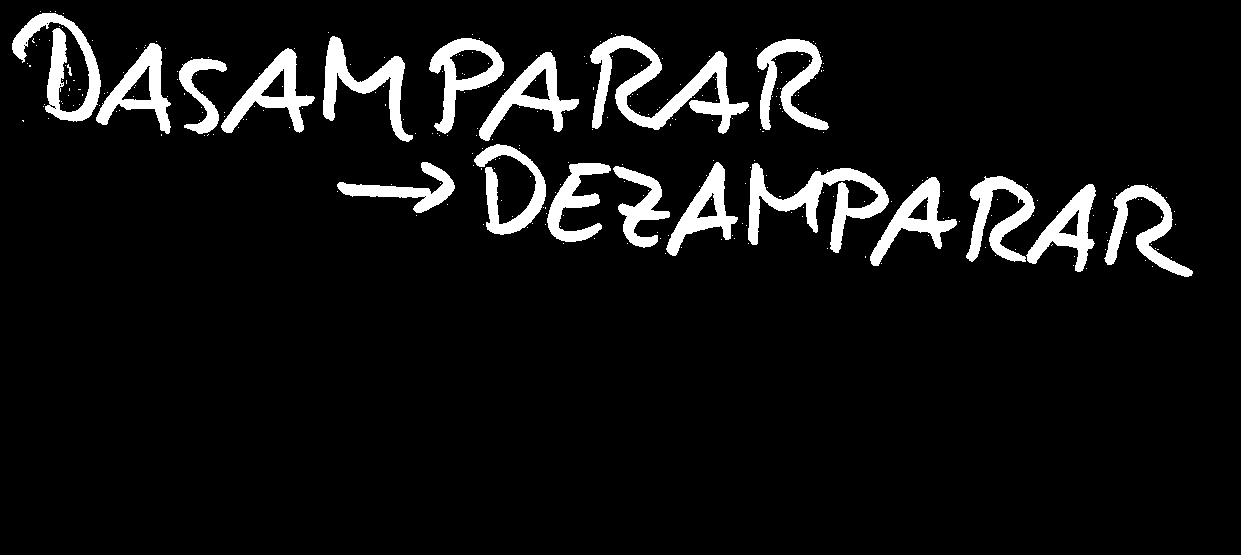 DASAMPARAR
→ DEZAMPARAR